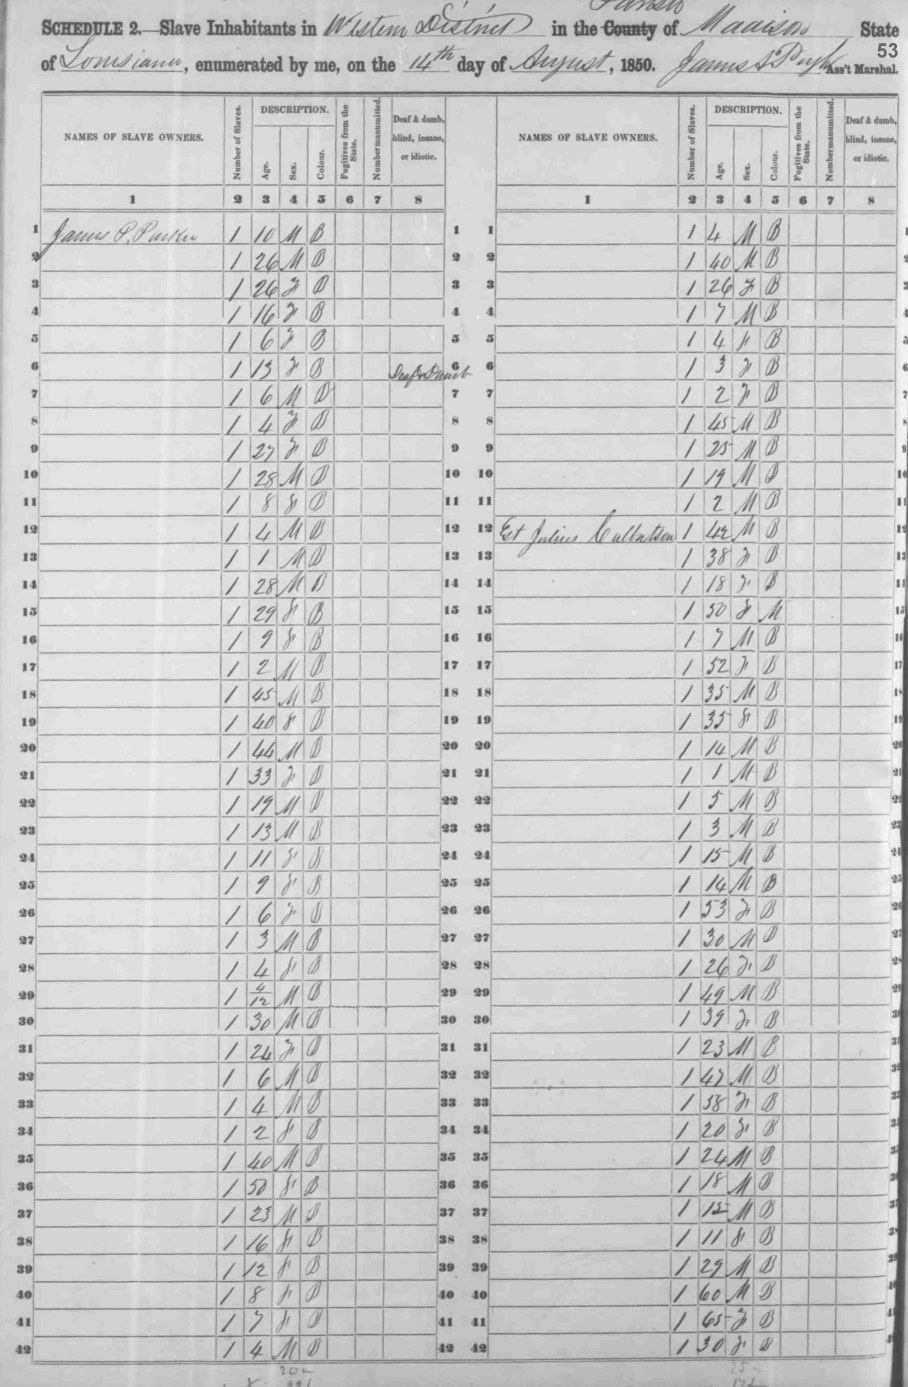 Parish
SCHEDULE 2.—Slave Inhabitants in Western District in the County of Madison State
53
of Louisiana, enumerated by me, on the 14th day of August, 1850. James S Pugh Ass't Marshal.
NAMES OF SLAVE OWNERS. Number of Slaves. DESCRIPTION. Age. Sex. Colour. Fugitives from the State. Number manumitted. Deaf & dumb, blind, insane, or idiotic. NAMES OF SLAVE OWNERS. Number of Slaves. DESCRIPTION. Age. Sex. Colour. Fugitives from the State. Number manumitted. Deaf & dumb, blind, insane, or idiotic.
1 2 3 4 5 6 7 8 1 2 3 4 5 6 7 8
1 James P. Parker 1 10 M B 1 1 1 4 M B 1
2 1 26 M B 2 2 1 40 M B 2
3 1 26 F B 3 3 1 26 F B 3
4 1 16 F B 4 4 1 7 M B 4
5 1 6 F B 5 5 1 4 F B 5
6 1 13 F B Deaf & Dumb 6 6 1 3 F B 6
7 1 6 M B 7 7 1 2 F B 7
8 1 4 F B 8 8 1 45 M B 8
9 1 27 F B 9 9 1 25 M B 9
10 1 28 M B 10 10 1 19 M B 10
11 1 8 F B 11 11 1 2 M B 11
12 1 4 M B 12 12 Est Julius Culbertson 1 42 M B 12
13 1 1 M B 13 13 1 38 F B 13
14 1 28 M B 14 14 1 18 F B 14
15 1 29 F B 15 15 1 50 F M 15
16 1 9 F B 16 16 1 7 M B 16
17 1 2 M B 17 17 1 52 F B 17
18 1 45 M B 18 18 1 35 M B 18
19 1 40 F B 19 19 1 35 F B 19
20 1 44 M B 20 20 1 14 M B 20
21 1 33 F B 21 21 1 1 M B 21
22 1 19 M B 22 22 1 5 M B 22
23 1 13 M B 23 23 1 3 M B 23
24 1 11 F B 24 24 1 15 M B 24
25 1 9 F B 25 25 1 14 M B 25
26 1 6 F B 26 26 1 53 F B 26
27 1 3 M B 27 27 1 30 M B 27
28 1 4 F B 28 28 1 26 F B 28
29 1 4/12 M B 29 29 1 49 M B 29
30 1 30 M B 30 30 1 39 F B 30
31 1 24 F B 31 31 1 23 M B 31
32 1 6 M B 32 32 1 47 M B 32
33 1 4 M B 33 33 1 58 F B 33
34 1 2 F B 34 34 1 20 F B 34
35 1 40 M B 35 35 1 24 M B 35
36 1 50 F B 36 36 1 18 M B 36
37 1 23 M B 37 37 1 12 M B 37
38 1 16 F B 38 38 1 11 F B 38
39 1 12 F B 39 39 1 29 M B 39
40 1 8 F B 40 40 1 60 M B 40
41 1 7 F B 41 41 1 65 F B 41
42 1 4 M B 42 42 1 30 F B